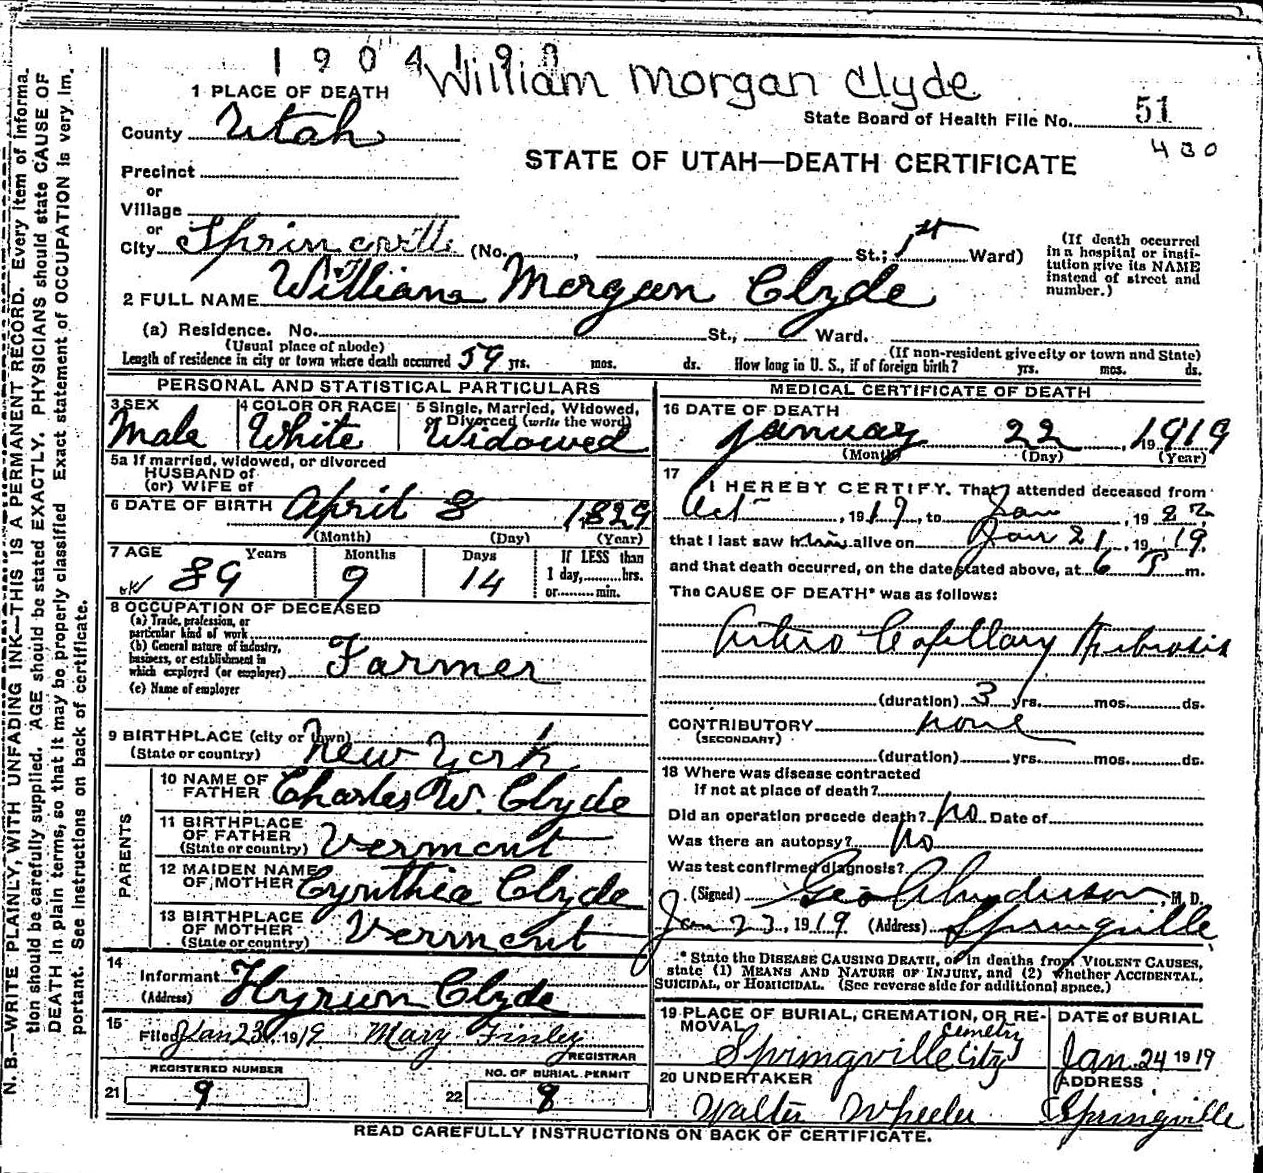 1904190
William Morgan Clyde
1 PLACE OF DEATH
State Board of Health File No. 51
County Utah
430
STATE OF UTAH—DEATH CERTIFICATE
Precinct
or
Village
or
City Springville (No. , St.; 1st Ward)
(If death occurred in a hospital or institution give its NAME instead of street and number.)
2 FULL NAME William Morgan Clyde
(a) Residence. No. St., Ward.
(Usual place of abode) (If non-resident give city or town and State)
Length of residence in city or town where death occurred 59 yrs. mos. ds. How long in U. S., if of foreign birth? yrs. mos. ds.
PERSONAL AND STATISTICAL PARTICULARS
3 SEX Male
4 COLOR OR RACE White
5 Single, Married, Widowed, Divorced (write the word) Widowed
5a If married, widowed, or divorced
HUSBAND of
(or) WIFE of
6 DATE OF BIRTH April 8 1829
(Month) (Day) (Year)
7 AGE Years Months Days If LESS than
89 9 14 1 day, hrs.
or min.
8 OCCUPATION OF DECEASED
(a) Trade, profession, or
particular kind of work
(b) General nature of industry,
business, or establishment in
which employed (or employer) Farmer
(c) Name of employer
9 BIRTHPLACE (city or town)
(State or country) New York
PARENTS
10 NAME OF FATHER Charles W. Clyde
11 BIRTHPLACE OF FATHER
(State or country) Vermont
12 MAIDEN NAME OF MOTHER Cynthia Clyde
13 BIRTHPLACE OF MOTHER
(State or country) Vermont
14
Informant Hyrum Clyde
(Address)
15
Filed Jan 23, 1919 Mary Finley
REGISTRAR
REGISTERED NUMBER
21 9
NO. OF BURIAL PERMIT
22 8
MEDICAL CERTIFICATE OF DEATH
16 DATE OF DEATH
January 22, 1919
(Month) (Day) (Year)
17
I HEREBY CERTIFY, That I attended deceased from
Oct , 1917, to Jan , 19
that I last saw him alive on Jan 21, 1919.
and that death occurred, on the date stated above, at 6 m.
The CAUSE OF DEATH* was as follows:
Arterio Capillary Fibrosis
(duration) 3 yrs. mos. ds.
CONTRIBUTORY none
(SECONDARY)
(duration) yrs. mos. ds.
18 Where was disease contracted
if not at place of death?
Did an operation precede death? No Date of
Was there an autopsy? No
Was test confirmed diagnosis?
(Signed) Geo Anderson, M. D.
Jan 23, 1919 (Address) Springville
* State the DISEASE CAUSING DEATH, or in deaths from VIOLENT CAUSES,
state (1) MEANS AND NATURE OF INJURY, and (2) whether ACCIDENTAL,
SUICIDAL, or HOMICIDAL. (See reverse side for additional space.)
19 PLACE OF BURIAL, CREMATION, OR REMOVAL
Springville City Cemetry
DATE of BURIAL
Jan. 24 1919
20 UNDERTAKER
Walter Wheeler
ADDRESS
Springville
READ CAREFULLY INSTRUCTIONS ON BACK OF CERTIFICATE.
N. B.—WRITE PLAINLY, WITH UNFADING INK—THIS IS A PERMANENT RECORD. Every item of informa-
tion should be carefully supplied. AGE should be stated EXACTLY. PHYSICIANS should state CAUSE OF
DEATH in plain terms, so that it may be properly classified. Exact statement of OCCUPATION is very im-
portant. See instructions on back of certificate.